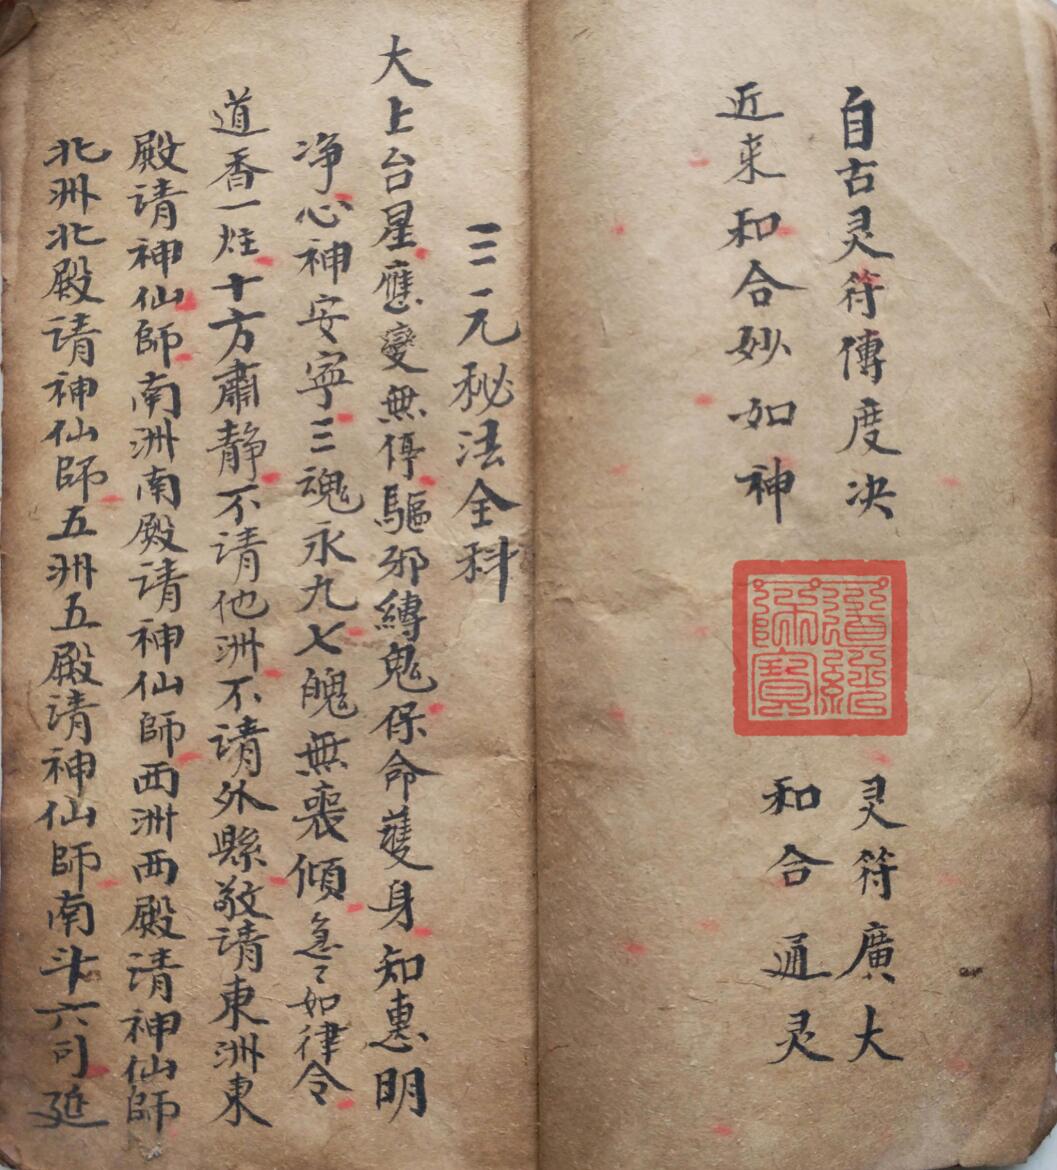 自古灵符傳度决
近来和合妙如神
道經師寳
灵符廣大
和合通灵
三元秘法全科
大上台星應變無停驅邪縛鬼保命護身知惠明
净心神安寍三魂永九七魄無丧傾急〻如律令
道香一炷十方肅静不请他洲不请外縣敬请東洲東
殿请神仙師南洲南殿请神仙師西洲西殿请神仙師
北洲北殿请神仙師五洲五殿请神仙師南斗六司延